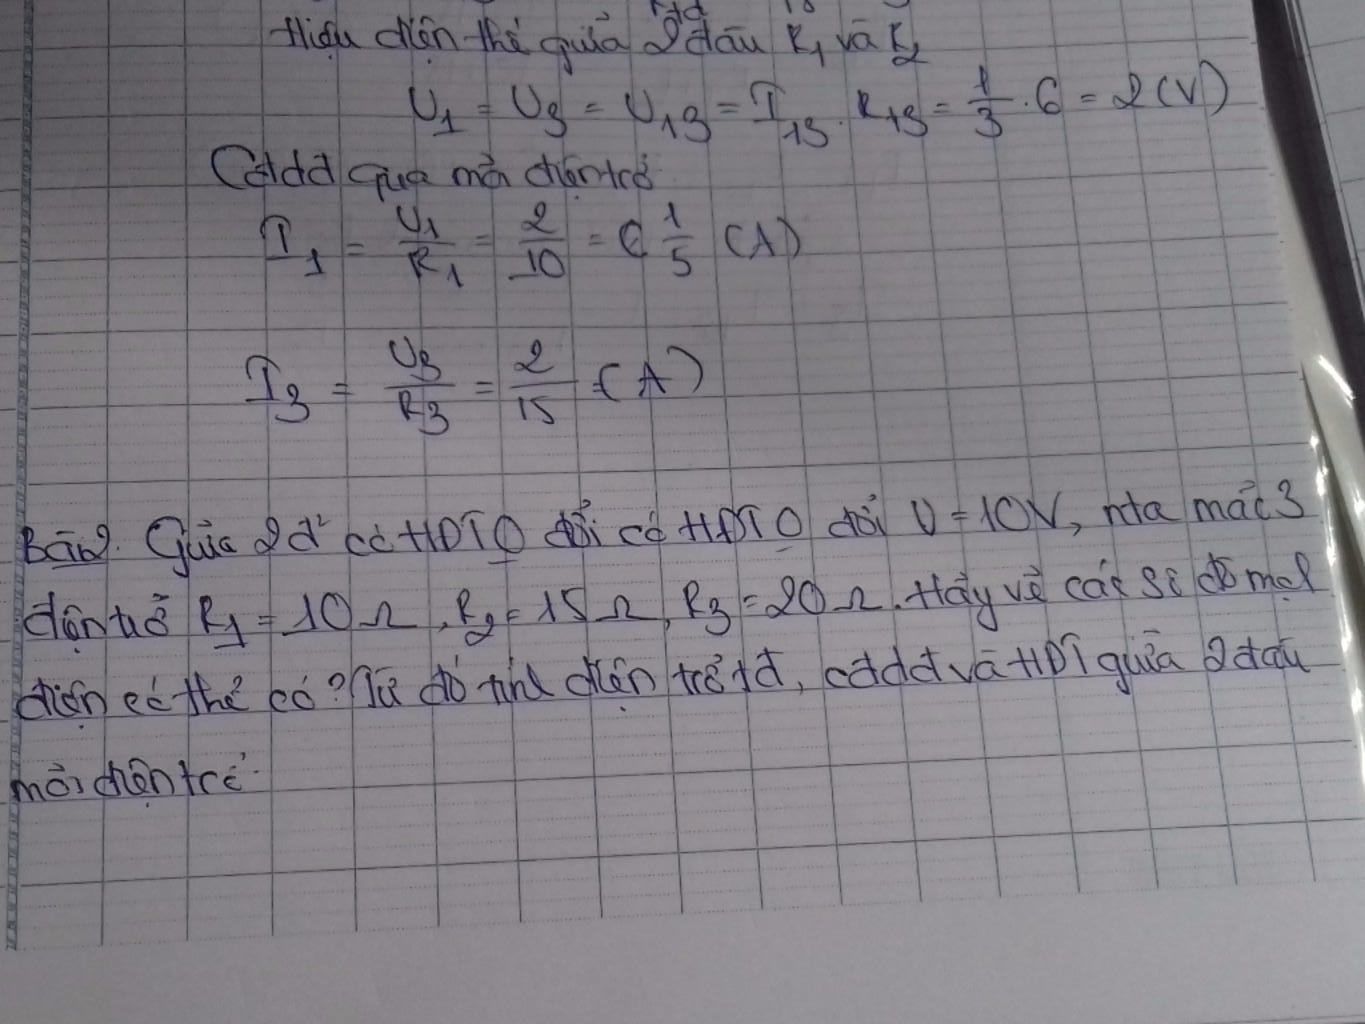 Rtđ
Hiệu điện thế giữa 2 đầu R₁ và R₂
U₁ = U₃ = U₁₃ = I₁₃ . R₁₃ = 1/3 . 6 = 2 (V)
Cđdđ qua mỗi điện trở
I₁ = U₁/R₁ = 2/10 = 1/5 (A)
I₃ = U₃/R₃ = 2/15 (A)
Bài 2. Giữa 2 đ' có HĐT O đổi có HĐT O đổi U = 10V, nta mắc 3
điện trở R₁ = 10Ω, R₂ = 15Ω, R₃ = 20Ω. Hãy vẽ các sơ đồ mạch
điện có thể có? Từ đó tính điện trở tđ, cđdđ và HĐT giữa 2 đầu
mỗi điện trở.